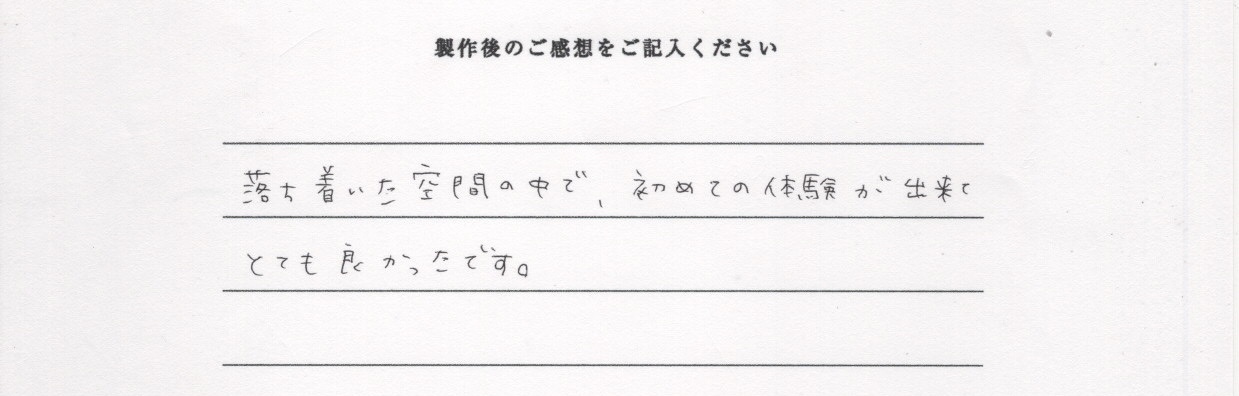 製作後のご感想をご記入ください
落ち着いた空間の中で、初めての体験が出来て
とても良かったです。